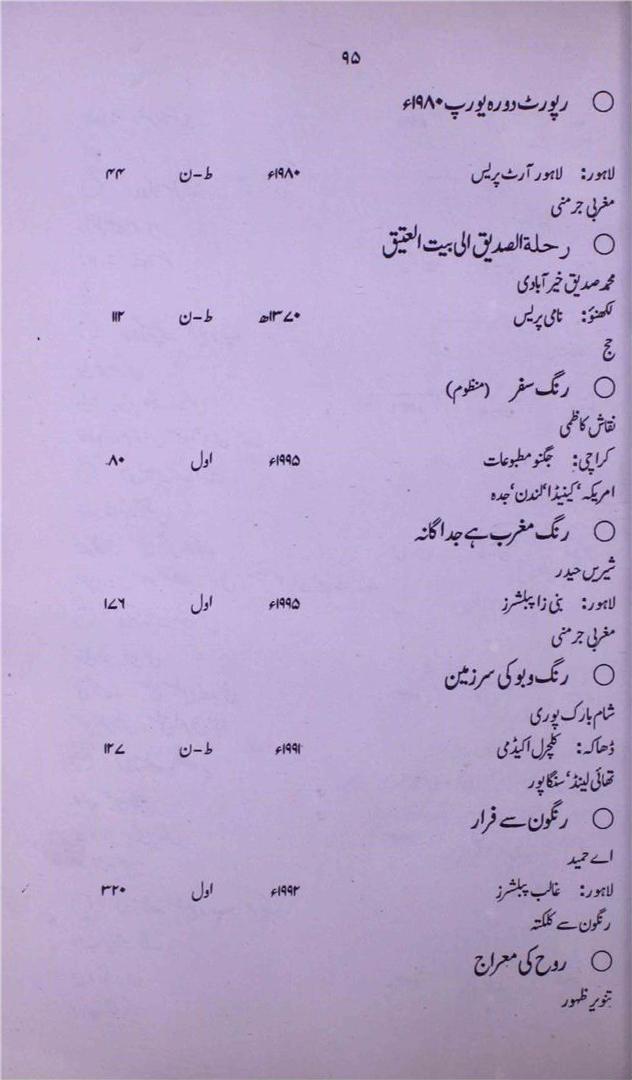 ۹۵
○ رپورٹ دورہ یورپ ۱۹۸۰ء
لاہور: لاہور آرٹ پریس ۱۹۸۰ء ط-ن ۴۴
مغربی جرمنی
○ رحلۃ الصدیق الی بیت العتیق
محمد صدیق خیر آبادی
لکھنؤ: نامی پریس ۱۳۷۰ھ ط-ن ۱۱۲
حج
○ رنگ سفر (منظوم)
نقاش کاظمی
کراچی: جگنو مطبوعات ۱۹۹۵ء اول ۸۰
امریکہ‘ کینیڈا‘ لندن‘ جدہ
○ رنگ مغرب ہے جداگانہ
شیریں حیدر
لاہور: بنی زا پبلشرز ۱۹۹۵ء اول ۱۷۶
مغربی جرمنی
○ رنگ و بو کی سرزمین
شام بارک پوری
ڈھاکہ: کلچرل اکیڈمی ۱۹۹۱ء ط-ن ۱۲۷
تھائی لینڈ‘ سنگاپور
○ رنگون سے فرار
اے حمید
لاہور: غالب پبلشرز ۱۹۹۲ء اول ۳۲۰
رنگون سے کلکتہ
○ روح کی معراج
تنویر ظہور